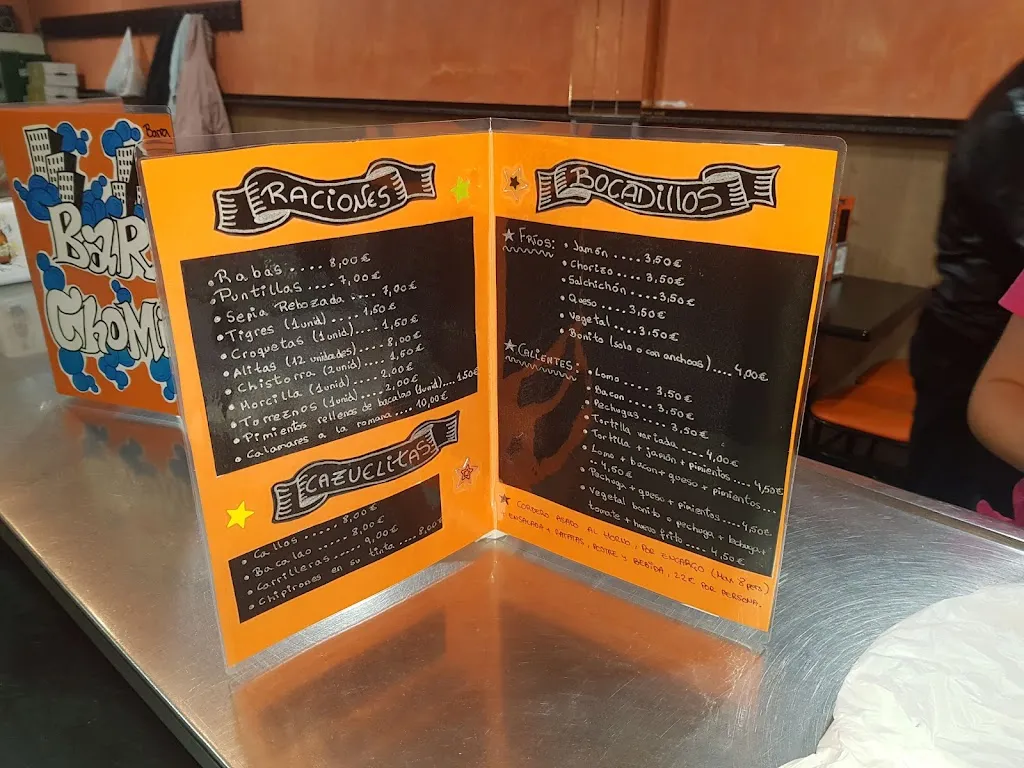 Barra
BAR
CHOMI
RACIONES
• Rabas .... 8,00€
• Puntillas .... 7,00€
• Sepia Rebozada .... 7,00€
• Tigres (1unid) .... 1,50€
• Croquetas (1unid) .... 1,50€
• Alitas (12 unidades) .... 8,00€
• Chistorra (2unid) .... 1,50€
• Morcilla (1unid) .... 2,00€
• Torreznos (1unid) .... 2,00€
• Pimientos rellenos de bacalao (1unid) .... 1,50€
• Calamares a la romana .... 10,00€
CAZUELITAS
• Callos .... 8,00€
• Bacalao .... 8,00€
• Carrilleras .... 9,00€
• Chipirones en su tinta .... 8,00€
BOCADILLOS
FRÍOS:
• Jamón .... 3,50€
• Chorizo .... 3,50€
• Salchichón .... 3,50€
• Queso .... 3,50€
• Vegetal .... 3,50€
• Bonito (solo o con anchoas) .... 4,00€
CALIENTES:
• Lomo .... 3,50€
• Bacon .... 3,50€
• Pechuga .... 3,50€
• Tortilla variada .... 4,00€
• Tortilla + jamón + pimientos .... 4,50€
• Lomo + bacon + queso + pimientos ...
4,50€
• Pechuga + queso + pimientos .... 4,50€
• Vegetal bonito o pechuga + lechuga +
tomate + huevo frito .... 4,50€
CORDERO ASADO AL HORNO, POR ENCARGO (MIN. 8 pers)
ENSALADA + PATATAS, POSTRE Y BEBIDA, 22€ POR PERSONA.